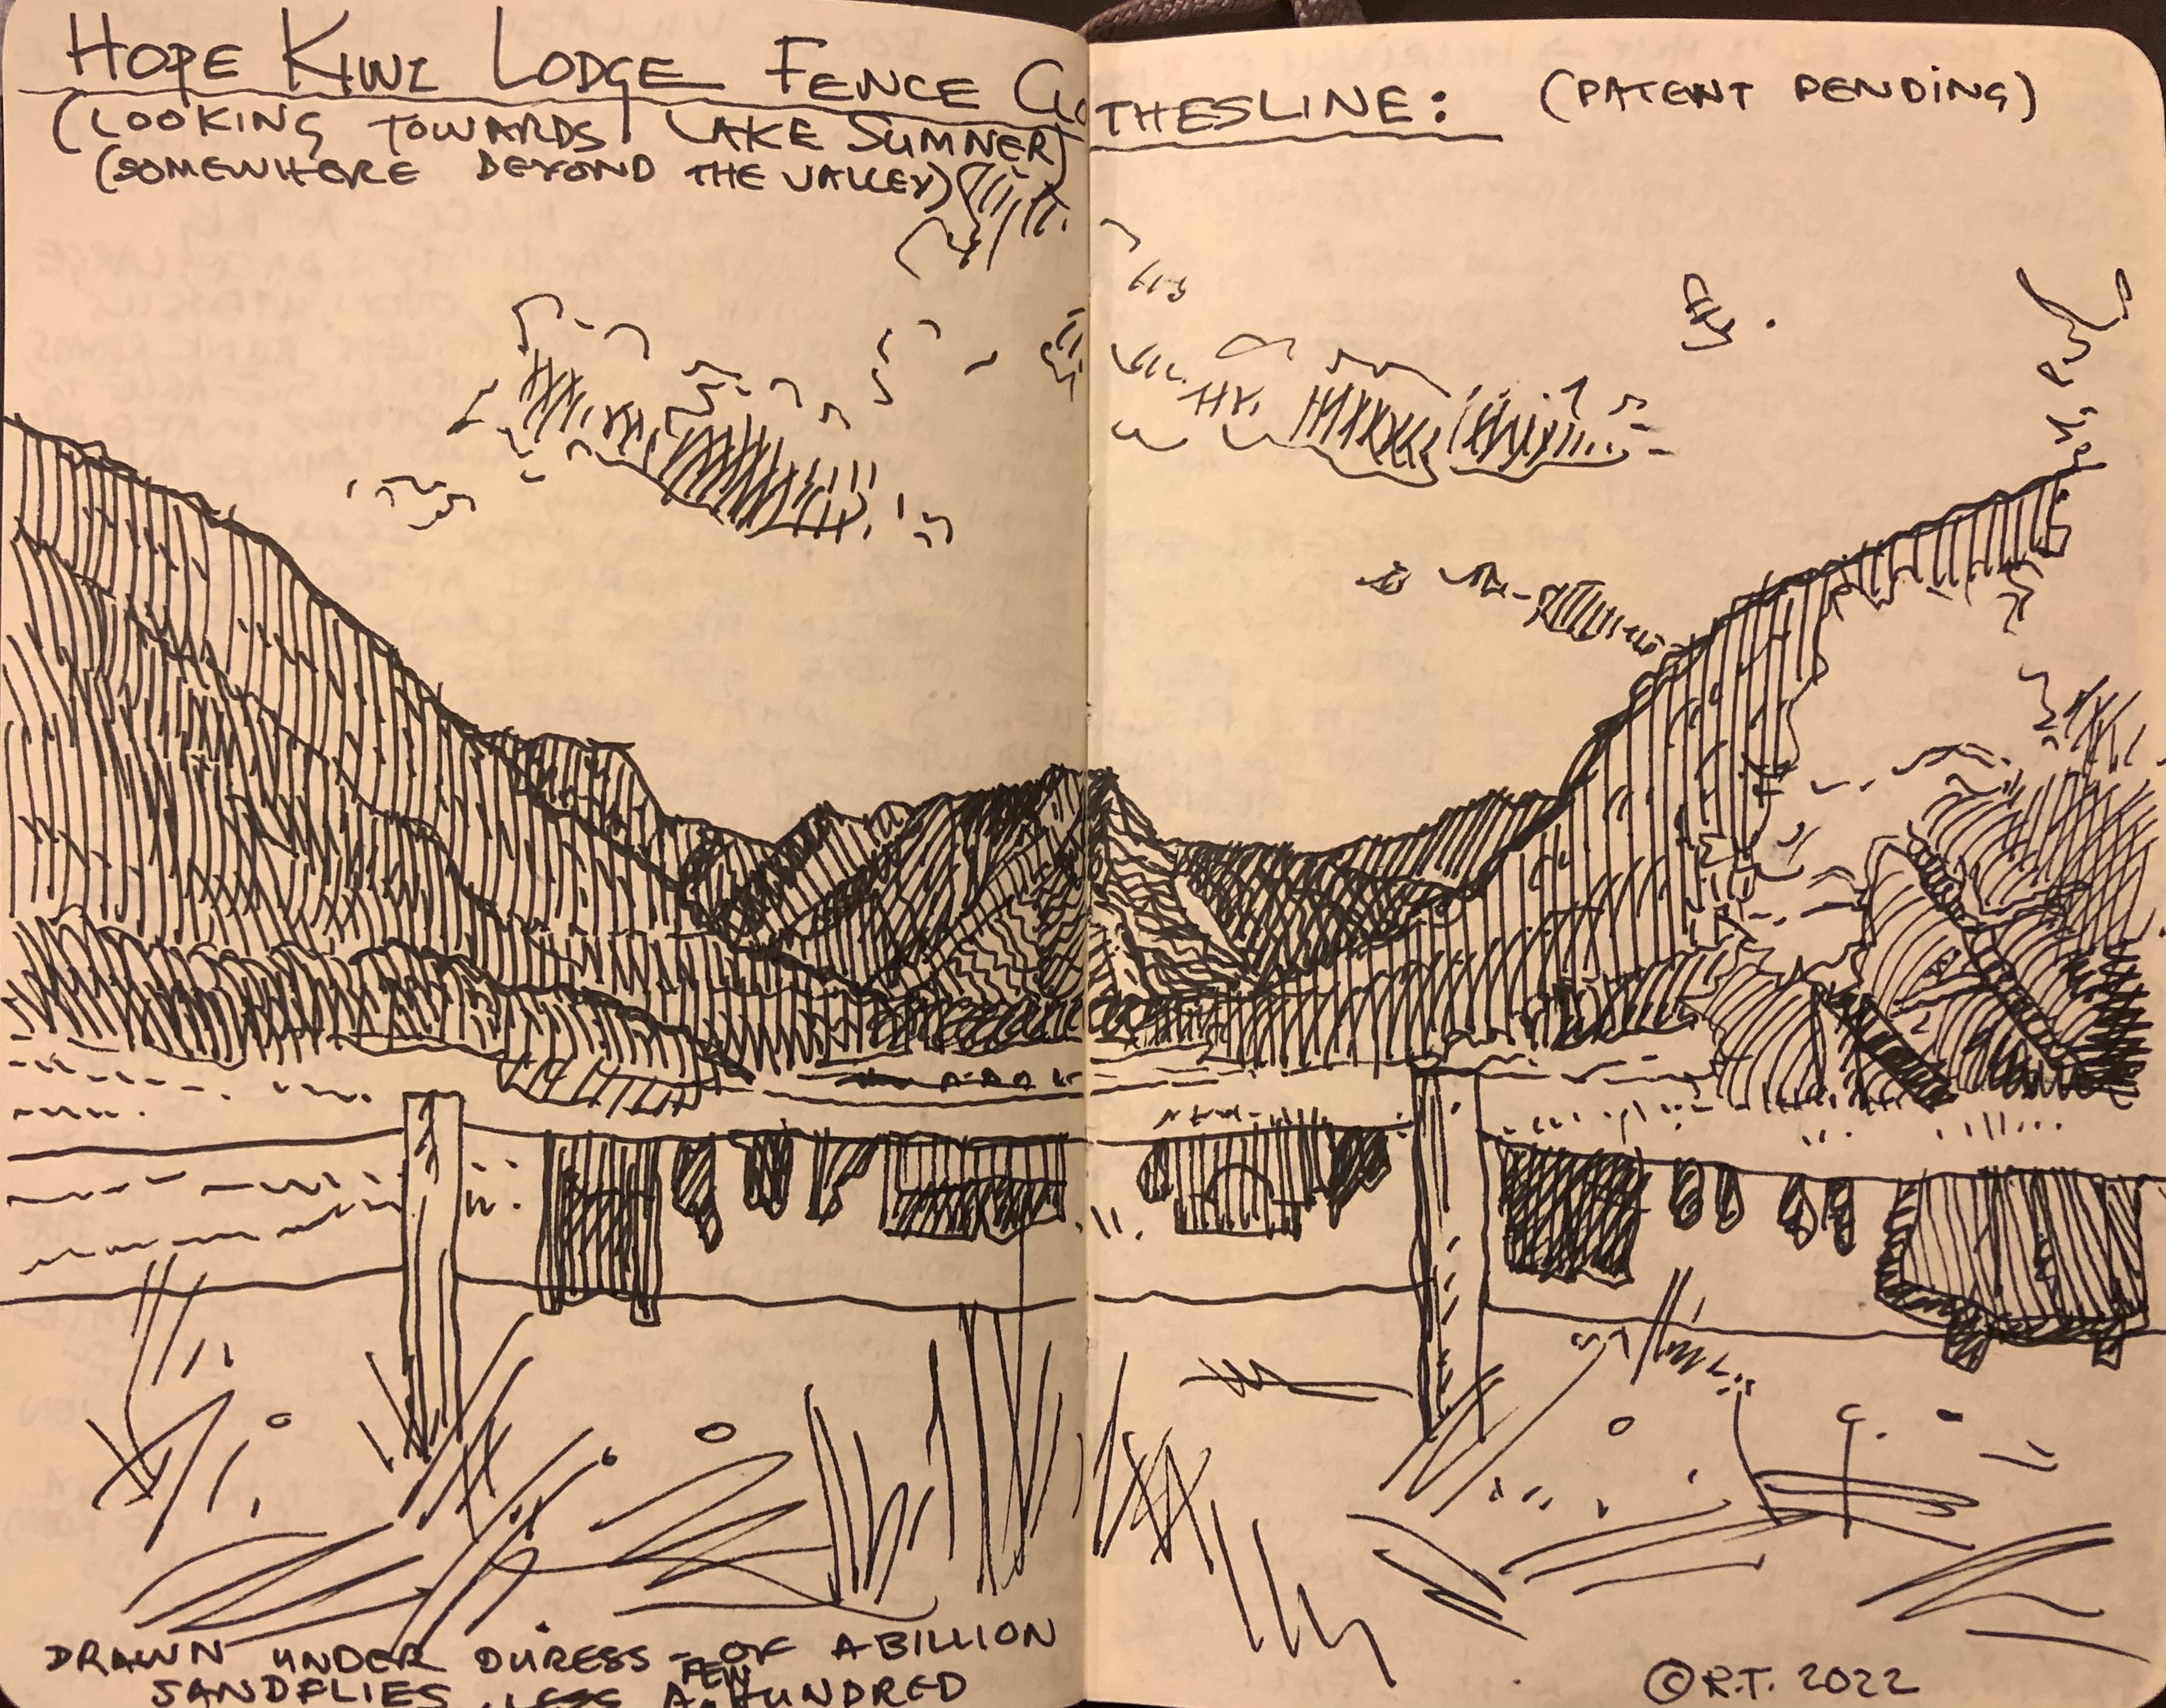 HOPE KIWI LODGE FENCE CLOTHESLINE: (PATENT PENDING)
(LOOKING TOWARDS LAKE SUMNER)
(SOMEWHERE BEYOND THE VALLEY)
DRAWN UNDER DURESS - OF A BILLION
SANDFLIES, LESS A FEW HUNDRED
© R.T. 2022